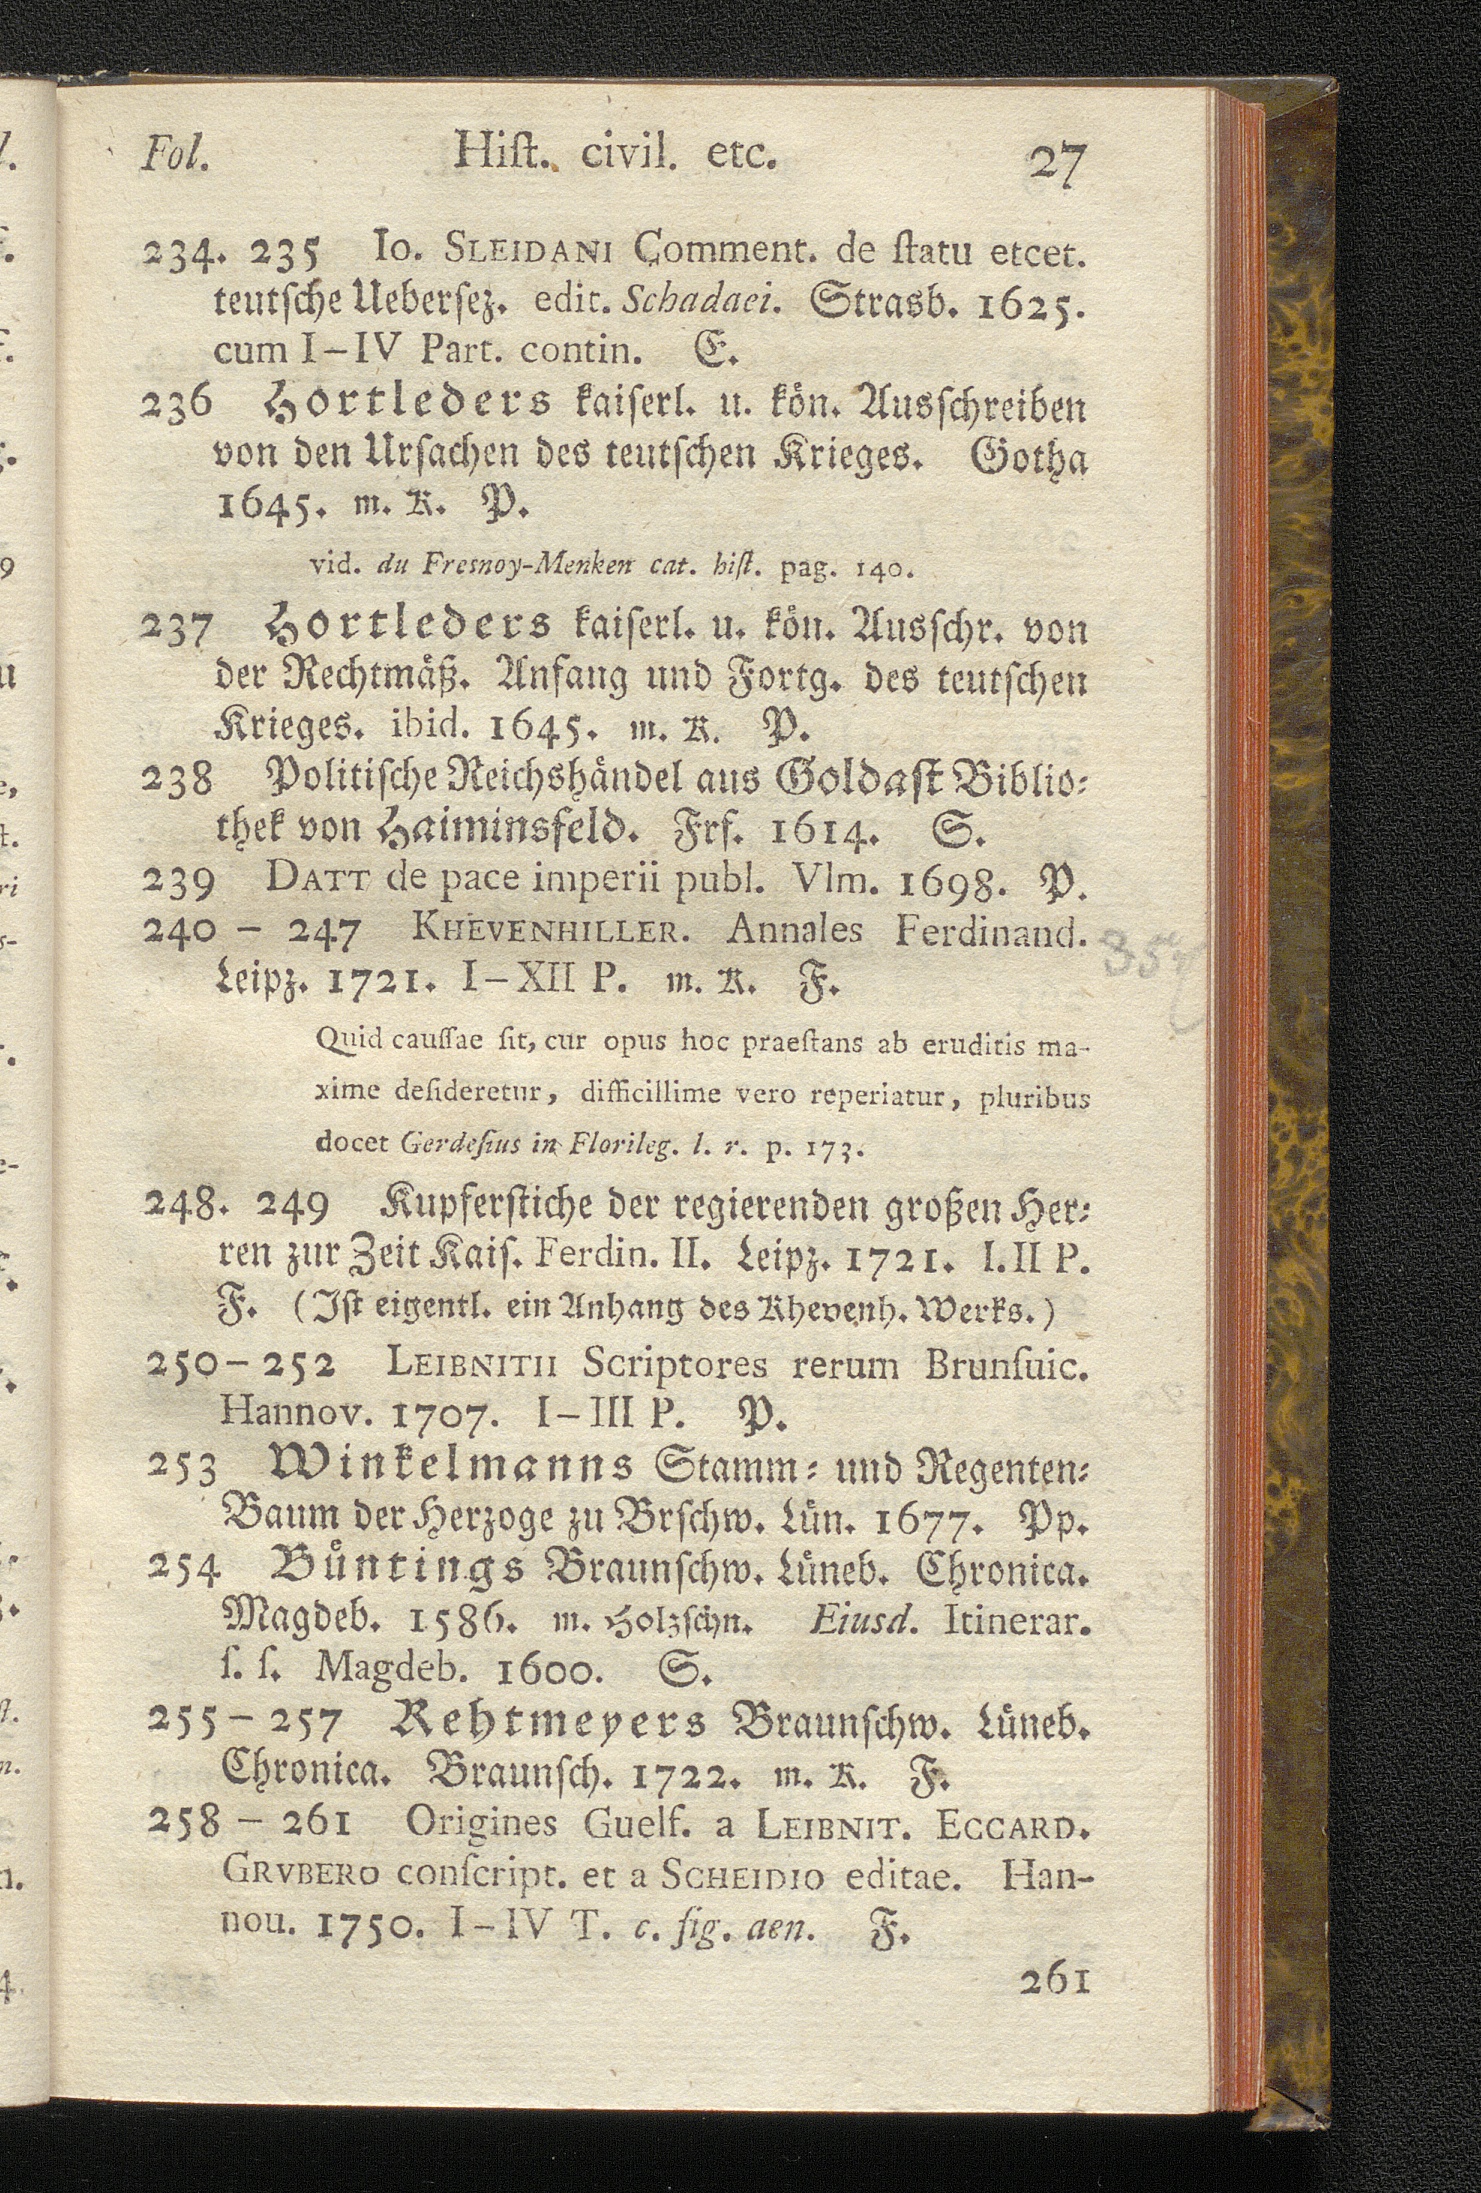 Fol. Hiſt. civil. etc. 27
234. 235 Io. SLEIDANI Comment. de ſtatu etcet.
teutſche Ueberſez. edit. Schadaei. Strasb. 1625.
cum I–IV Part. contin. E.
236 Hortleders kaiſerl. u. kön. Ausſchreiben
von den Urſachen des teutſchen Krieges. Gotha
1645. m. K. P.
vid. du Fresnoy-Menken cat. hiſt. pag. 140.
237 Hortleders kaiſerl. u. kön. Ausſchr. von
der Rechtmäß. Anfang und Fortg. des teutſchen
Krieges. ibid. 1645. m. K. P.
238 Politiſche Reichshändel aus Goldaſt Biblio-
thek von Haiminsfeld. Frf. 1614. S.
239 DATT de pace imperii publ. Vlm. 1698. P.
240 – 247 KHEVENHILLER. Annales Ferdinand.
Leipz. 1721. I–XII P. m. K. F.
Quid cauſſae ſit, cur opus hoc praeſtans ab eruditis ma-
xime deſideretur, difficillime vero reperiatur, pluribus
docet Gerdeſius in Florileg. l. r. p. 173.
248. 249 Kupferſtiche der regierenden großen Her-
ren zur Zeit Kaiſ. Ferdin. II. Leipz. 1721. I. II P.
F. (Iſt eigentl. ein Anhang des Khevenh. Werks.)
250 – 252 LEIBNITII Scriptores rerum Brunſuic.
Hannov. 1707. I–III P. P.
253 Winkelmanns Stamm- und Regenten-
Baum der Herzoge zu Brſchw. Lün. 1677. Pp.
254 Büntings Braunſchw. Lüneb. Chronica.
Magdeb. 1586. m. Holzſchn. Eiusd. Itinerar.
ſ. ſ. Magdeb. 1600. S.
255 – 257 Rehtmeyers Braunſchw. Lüneb.
Chronica. Braunſch. 1722. m. K. F.
258 – 261 Origines Guelf. a LEIBNIT. ECCARD.
GRVBERO conſcript. et a SCHEIDIO editae. Han-
nou. 1750. I–IV T. c. fig. aen. F.
261